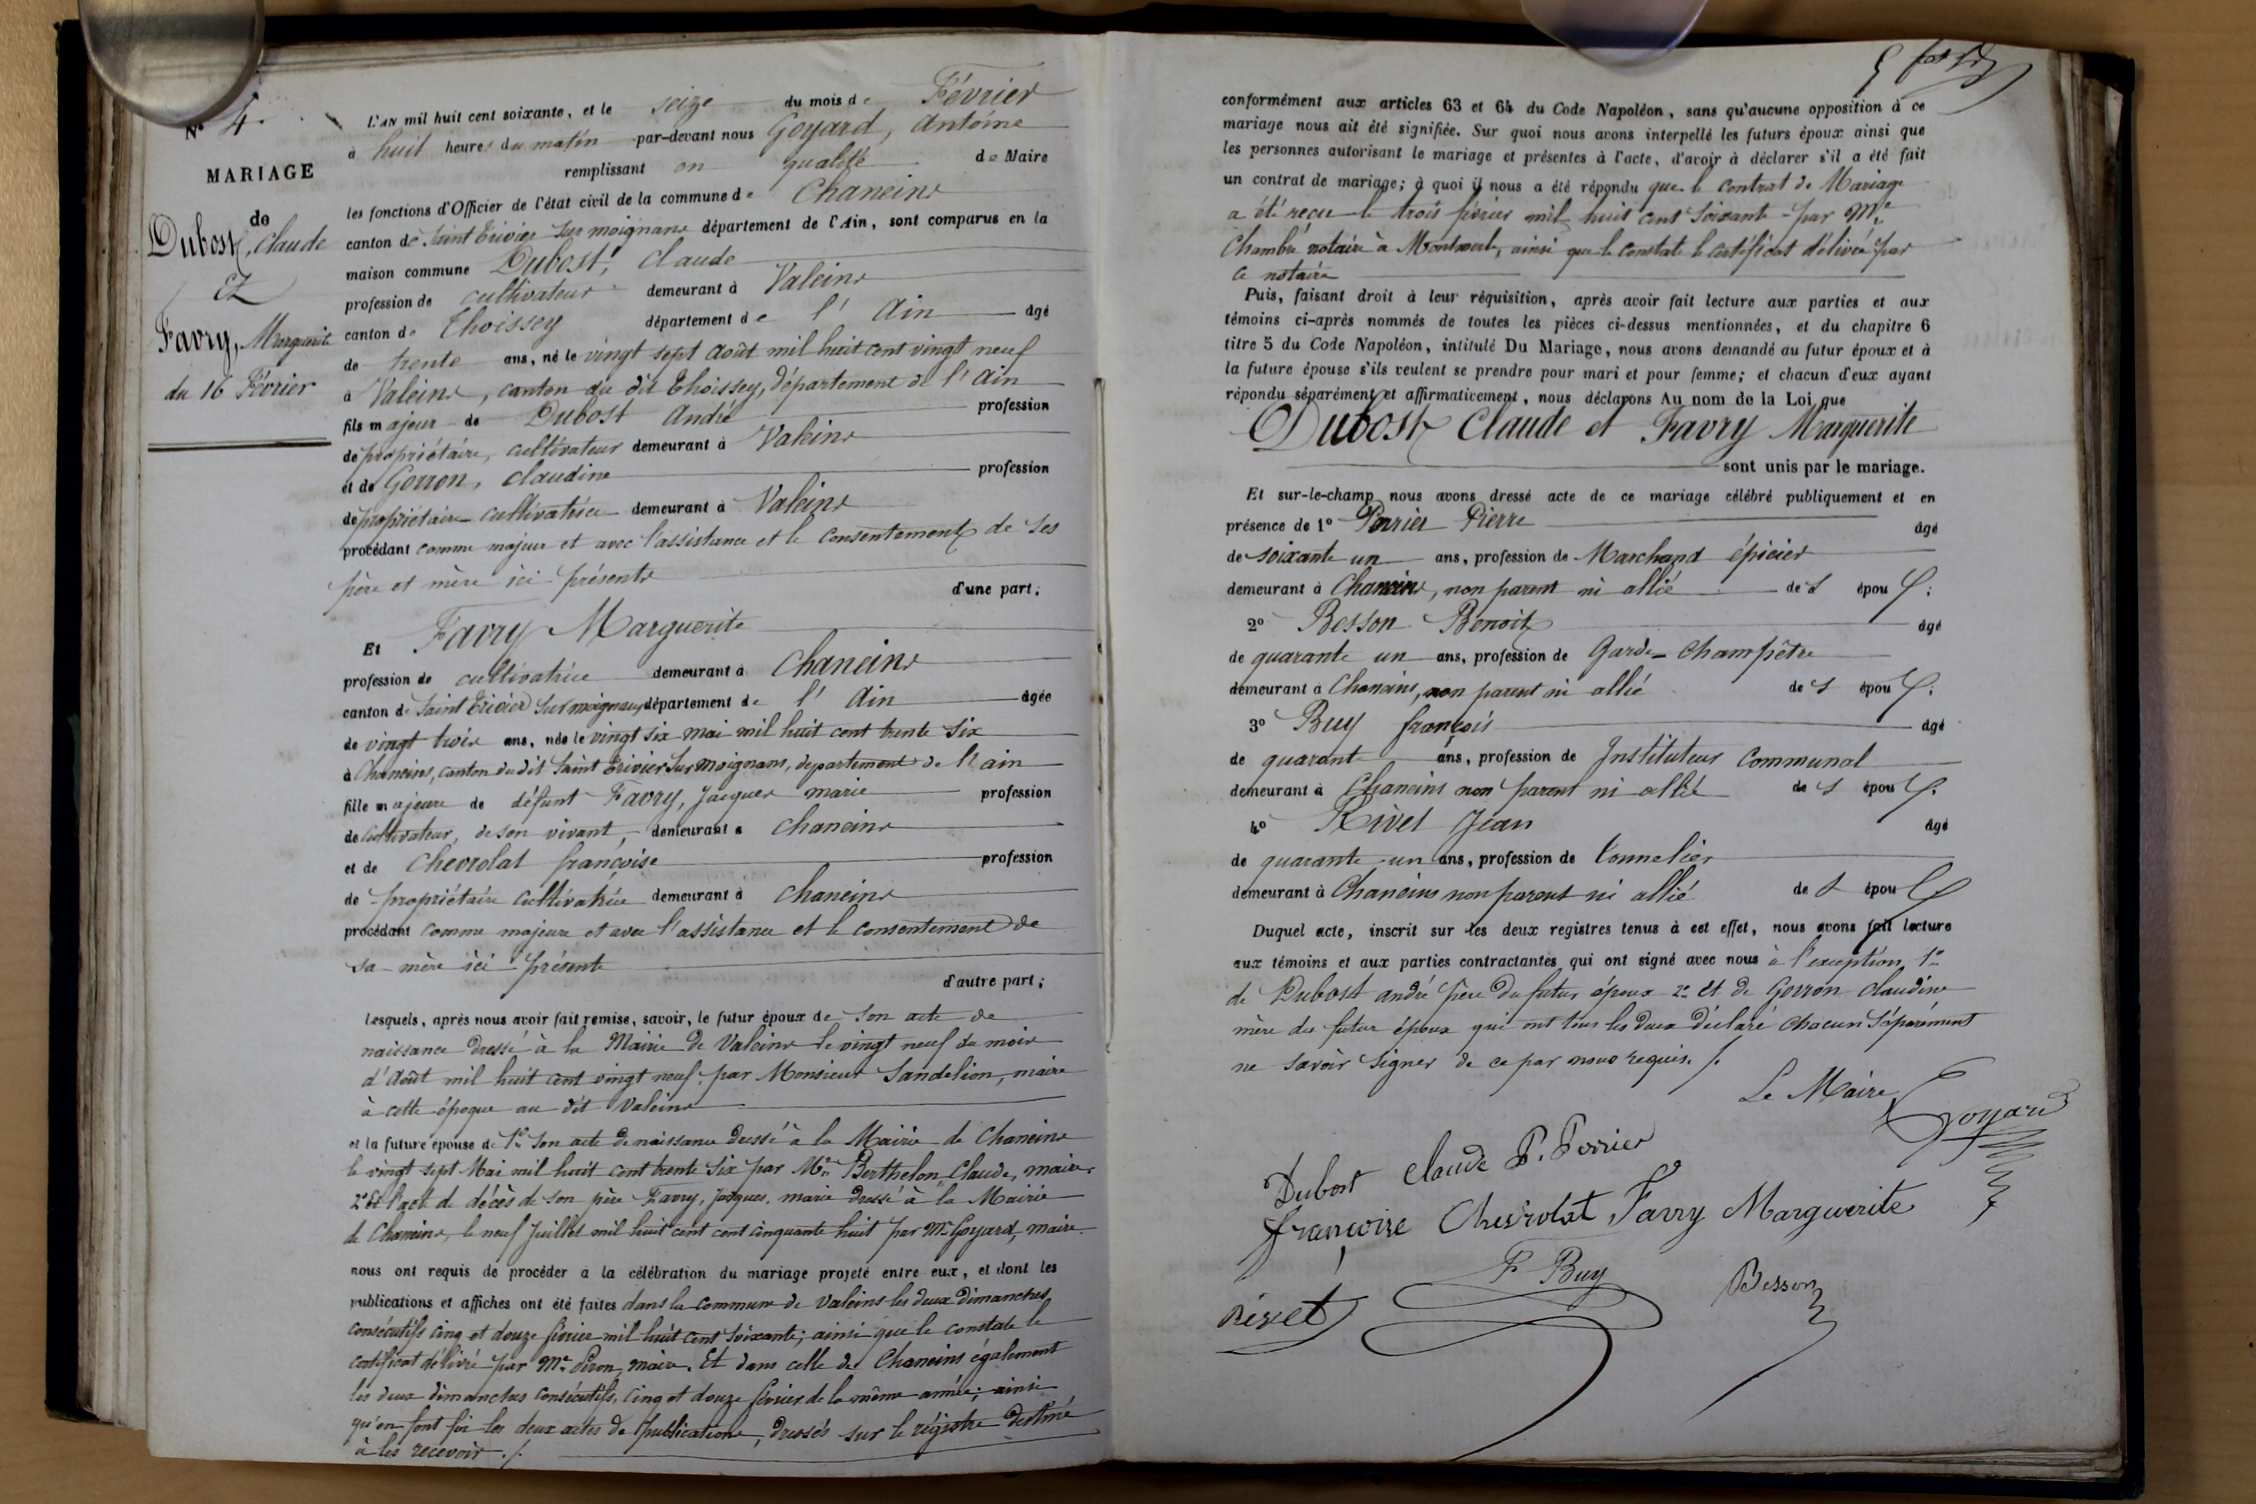 N° 4.
MARIAGE
de
Dubost, Claude
et
Favry, Marguerite
du 16 Février
L'AN mil huit cent soixante, et le seize du mois de Février
à huit heures du matin par-devant nous Goyard, Antoine
remplissant en qualité de Maire
les fonctions d'Officier de l'état civil de la commune de Chaneins
canton de Saint Trivier sur moignans département de l'Ain, sont comparus en la
maison commune Dubost, Claude
profession de cultivateur demeurant à Valeins
canton de Thoissey département de l'Ain âgé
de trente ans, né le vingt sept Août mil huit cent vingt neuf
à Valeins, canton du dit Thoissey, département de l'Ain
fils majeur de Dubost André profession
de propriétaire, cultivateur demeurant à Valeins
et de Gorron, Claudine profession
de propriétaire cultivatrice demeurant à Valeins
procédant comme majeur et avec l'assistance et le consentement de ses
père et mère ici présents
d'une part;
Et Favry Marguerite
profession de cultivatrice demeurant à Chaneins
canton de Saint Trivier sur moignans département de l'Ain âgée
de vingt trois ans, née le vingt six mai mil huit cent trente six
à Chaneins, canton du dit Saint Trivier sur moignans, département de l'ain
fille majeure de défunt Favry, Jacques marie profession
de cultivateur, de son vivant, demeurant à Chaneins
et de Chevrolat françoise profession
de propriétaire cultivatrice demeurant à Chaneins
procédant comme majeure et avec l'assistance et le consentement de
sa mère ici présente
d'autre part;
Lesquels, après nous avoir fait remise, savoir, le futur époux de son acte de
naissance dressé à la Mairie de Valeins le vingt neuf du mois
d'Août mil huit cent vingt neuf, par Monsieur Sandelion, maire
à cette époque au dit Valeins
et la future épouse de 1° son acte de naissance dressé à la Mairie de Chaneins
le vingt sept Mai mil huit cent trente six par Mr Berthelon Claude, maire
2° Et l'acte de décès de son père Favry, Jacques marie dressé à la Mairie
de Chaneins, le neuf Juillet mil huit cent cent cinquante huit par Mr Goyard, maire
nous ont requis de procéder à la célébration du mariage projeté entre eux, et dont les
publications et affiches ont été faites dans la commune de Valeins les deux dimanches
consécutifs cinq et douze février mil huit cent soixante; ainsi que le constate le
certificat délivré par Mr maire. Et dans celle de Chaneins également
les deux dimanches consécutifs, cinq et douze février de la même année; ainsi
qu'en font foi les deux actes de publications, dressés sur le régistre destiné
à les recevoir ./.
conformément aux articles 63 et 64 du Code Napoléon, sans qu'aucune opposition à ce
mariage nous ait été signifiée. Sur quoi nous avons interpellé les futurs époux ainsi que
les personnes autorisant le mariage et présentes à l'acte, d'avoir à déclarer s'il a été fait
un contrat de mariage; à quoi il nous a été répondu que le contrat de Mariage
a été reçu le trois février mil huit cent soixante par Me
Chambre notaire à Montmerle, ainsi que le constate le certificat délivré par
ce notaire
Puis, faisant droit à leur réquisition, après avoir fait lecture aux parties et aux
témoins ci-après nommés de toutes les pièces ci-dessus mentionnées, et du chapitre 6
titre 5 du Code Napoléon, intitulé Du Mariage, nous avons demandé au futur époux et à
la future épouse s'ils veulent se prendre pour mari et pour femme; et chacun d'eux ayant
répondu séparément et affirmativement, nous déclarons Au nom de la Loi que
Dubost Claude et Favry Marguerite
sont unis par le mariage.
Et sur-le-champ nous avons dressé acte de ce mariage célébré publiquement et en
présence de 1° Perrier Pierre âgé
de soixante un ans, profession de Marchand épicier
demeurant à Chaneins, non parent ni allié de s épou x;
2° Besson Benoit âgé
de quarante un ans, profession de Garde-Champêtre
demeurant à Chaneins, non parent ni allié de s épou x;
3° Buy françois âgé
de quarante ans, profession de Instituteur Communal
demeurant à Chaneins non parent ni allié de s épou x;
4° Rivet Jean âgé
de quarante un ans, profession de tonnelier
demeurant à Chaneins non parent ni allié de s épou x
Duquel acte, inscrit sur les deux registres tenus à cet effet, nous avons fait lecture
aux témoins et aux parties contractantes qui ont signé avec nous à l'exception 1°
de Dubost andré père du futur époux 2° Et de Gorron Claudine
mère du futur époux qui ont tous les deux déclaré chacun séparément
ne savoir signer de ce par nous requis ./.
Le Maire
Goyard
Dubost Claude P. Perrier
françoise Chevrolat Favry Marguerite
F Buy
Besson
Rivet